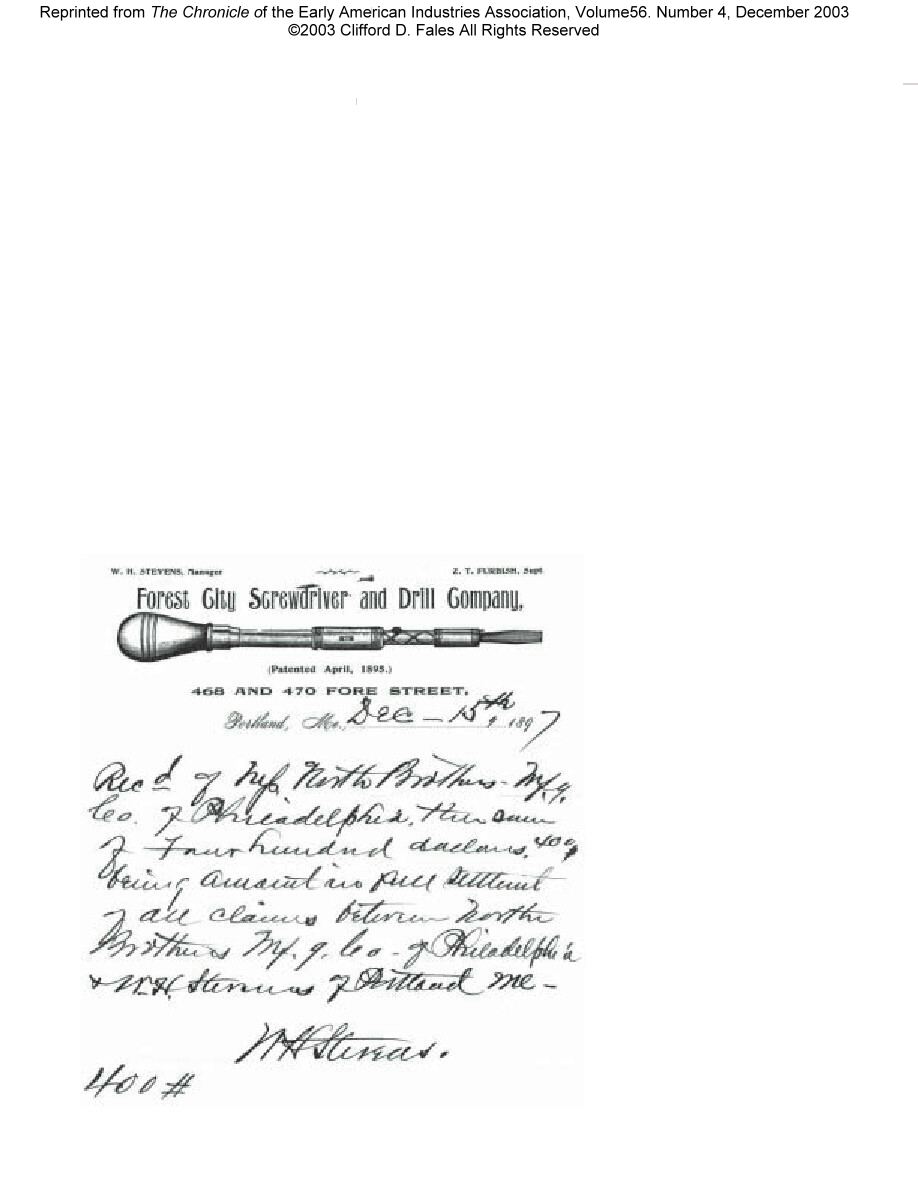 Reprinted from The Chronicle of the Early American Industries Association, Volume56. Number 4, December 2003
©2003 Clifford D. Fales All Rights Reserved
W. H. STEVENS, Manager
Z. T. FURBISH, Supt
Forest City Screwdriver and Drill Company,
(Patented April, 1895.)
468 AND 470 FORE STREET,
Portland, Me., Dec - 15th, 1897
Rec'd of North Brothers - Mf.g.
Co. of Philadelphia, the sum
of Four hundred dollars,
being amount in full settlement
of all claims between North
Brothers Mf.g. Co - of Philadelphia
& W.H. Stevens of Portland Me -
WH Stevens.
400 #